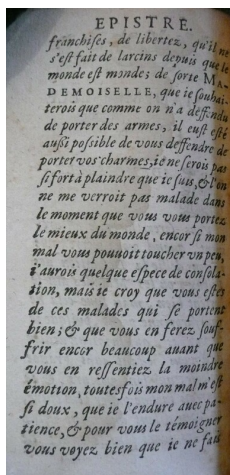 EPISTRE.
franchises, de libertez, qu'il ne
s'est fait de larcins depuis que le
monde est monde; de sorte MA-
DEMOISELLE, que ie souhai-
terois que comme on n'a deffendu
de porter des armes, il eust esté
aussi possible de vous deffendre de
porter vos charmes, ie ne serois pas
si fort à plaindre que ie suis, & l'on
ne me verroit pas malade dans
le moment que vous vous portez
le mieux du monde, encor si mon
mal vous pouuoit toucher vn peu,
i'aurois quelque espece de consola-
tion, mais ie croy que vous estes
de ces malades qui se portent
bien; & que vous en ferez souf-
frir encor beaucoup auant que
vous en ressentiez la moindre
émotion, toutesfois mon mal m'est
si doux, que ie l'endure auec pa-
tience, & pour vous le témoigner
vous voyez bien que ie ne fais